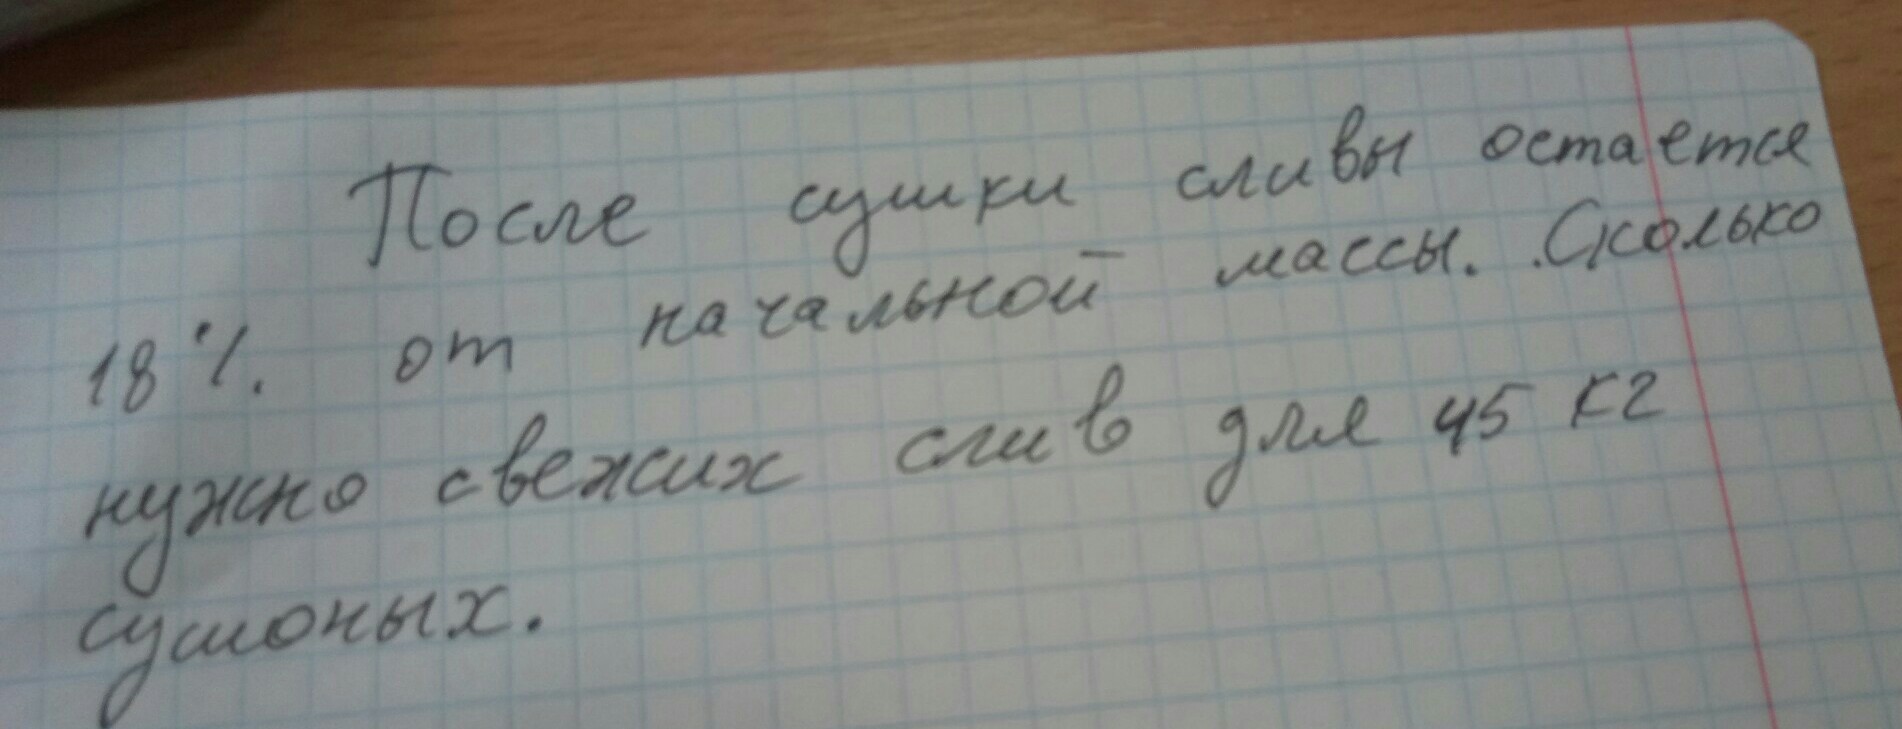 После сушки сливы остается
18%. от начальной массы. Сколько
нужно свежих слив для 45 кг
сушоных.